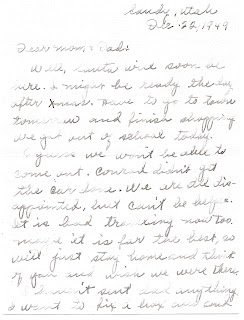 Sandy, Utah
Dec. 22, 1949
Dear Mom & Dad:
Well, santa will soon be
here. I might be ready the day
after Xmas. Have to go to town
tomorrow and finish shopping
we got out of school today.
I guess we won't be able to
come out. Conrad didn't get
the car done. We are all dis-
appointed, but can't be helped.
It is bad traveling now too.
maybe it is for the best, so
will just stay home and think
of you and wish we were there.
I haven't sent dad anything
I want to fix a box and